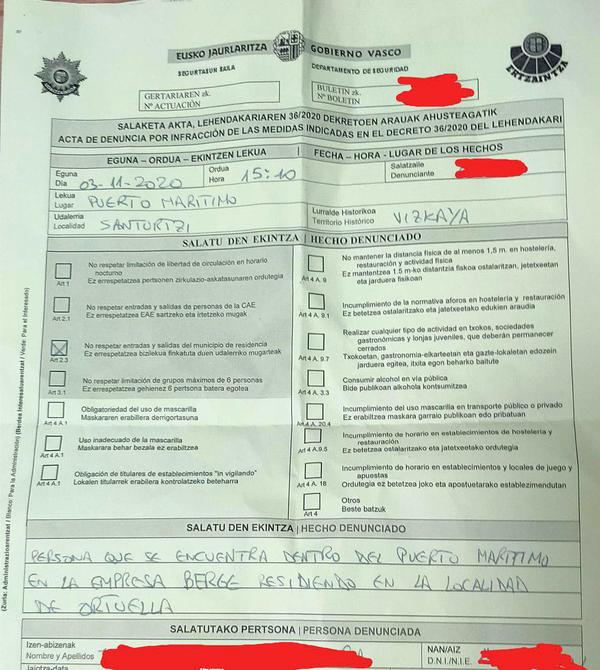 EUSKO JAURLARITZA
GOBIERNO VASCO
SEGURTASUN SAILA
DEPARTAMENTO DE SEGURIDAD
ERTZAINTZA
GERTARIAREN zk.
Nº ACTUACIÓN
BULETIN zk.
Nº BOLETIN
SALAKETA AKTA, LEHENDAKARIAREN 36/2020 DEKRETOEN ARAUAK AHUSTEAGATIK
ACTA DE DENUNCIA POR INFRACCIÓN DE LAS MEDIDAS INDICADAS EN EL DECRETO 36/2020 DEL LEHENDAKARI
EGUNA – ORDUA - EKINTZEN LEKUA
FECHA – HORA - LUGAR DE LOS HECHOS
Eguna
Día 03-11-2020
Ordua
Hora 15:10
Salatzaile
Denunciante
Lekua
Lugar PUERTO MARITIMO
Udalerria
Localidad SANTURTZI
Lurralde Historikoa
Territorio Histórico VIZKAYA
SALATU DEN EKINTZA | HECHO DENUNCIADO
Art 1
No respetar limitación de libertad de circulación en horario
nocturno
Ez errespetatzea pertsonen zirkulazio-askatasunaren ordutegia
Art 2.1
No respetar entradas y salidas de personas de la CAE
Ez errespetatzea EAE sartzeko eta irtetzeko mugak
Art 2.3
No respetar entradas y salidas del municipio de residencia
Ez errespetatzea bizilekua finkatuta duen udalerriko mugarteak
Art 3.1
No respetar limitación de grupos máximos de 6 personas
Ez errespetatzea gehienez 6 pertsona batera egotea
Art 4 A.1
Obligatoriedad del uso de mascarilla
Maskararen erabilera derrigortasuna
Art 4 A.1
Uso inadecuado de la mascarilla
Maskarara behar bezala ez erabiltzea
Art 4 A.1
Obligación de titulares de establecimientos "in vigilando"
Lokalen titularrek erabilera kontrolatzeko beteharra
Art 4 A. 9
No mantener la distancia física de al menos 1,5 m. en hostelería,
restauración y actividad física
Ez mantentzea 1.5 m-ko distantzia fiskoa ostalaritzan, jetetxeetan
eta jarduera fisikoan
Art 4 A. 9.1
Incumplimiento de la normativa aforos en hostelería y restauración
Ez betetzea ostalaritzako eta jatetxeetako edukien araudia
Art 4 A. 9.7
Realizar cualquier tipo de actividad en txokos, sociedades
gastronómicas y lonjas juveniles, que deberán permanecer
cerrados
Txokoetan, gastronomia-elkarteetan eta gazte-lokaletan edozein
jarduera egitea, itxita egon beharko baitute
Art 4 A. 3.3
Consumir alcohol en vía pública
Bide publikoan alkohola kontsumitzea
Art 4 A. 20.4
Incumplimiento del uso mascarilla en transporte público o privado
Ez erabiltzea maskara garraio publikoan edo pribatuan
Art 4 A.9.5
Incumplimiento de horario en establecimientos de hostelería y
restauración
Ez betetzea ostalaritzako eta jatetxeetako ordutegia
Art 4 A. 18
Incumplimiento de horario en establecimientos y locales de juego y
apuestas
Ordutegia ez betetzea joko eta apostuetarako establezimendutan
Art 4
Otros
Beste batzuk
SALATU DEN EKINTZA | HECHO DENUNCIADO
PERSONA QUE SE ENCUENTRA DENTRO DEL PUERTO MARITIMO
EN LA EMPRESA BERGE RESIDIENDO EN LA LOCALIDAD
DE ORTUELLA
SALATUTAKO PERTSONA | PERSONA DENUNCIADA
Izen-abizenak
Nombre y Apellidos
NAN/AIZ
D.N.I./N.I.E.
Jaiotza-data
(Zuria: Administrazioarentzat / Blanco: Para la Administración) (Berdea Interesatuarentzat / Verde: Para el Interesado)